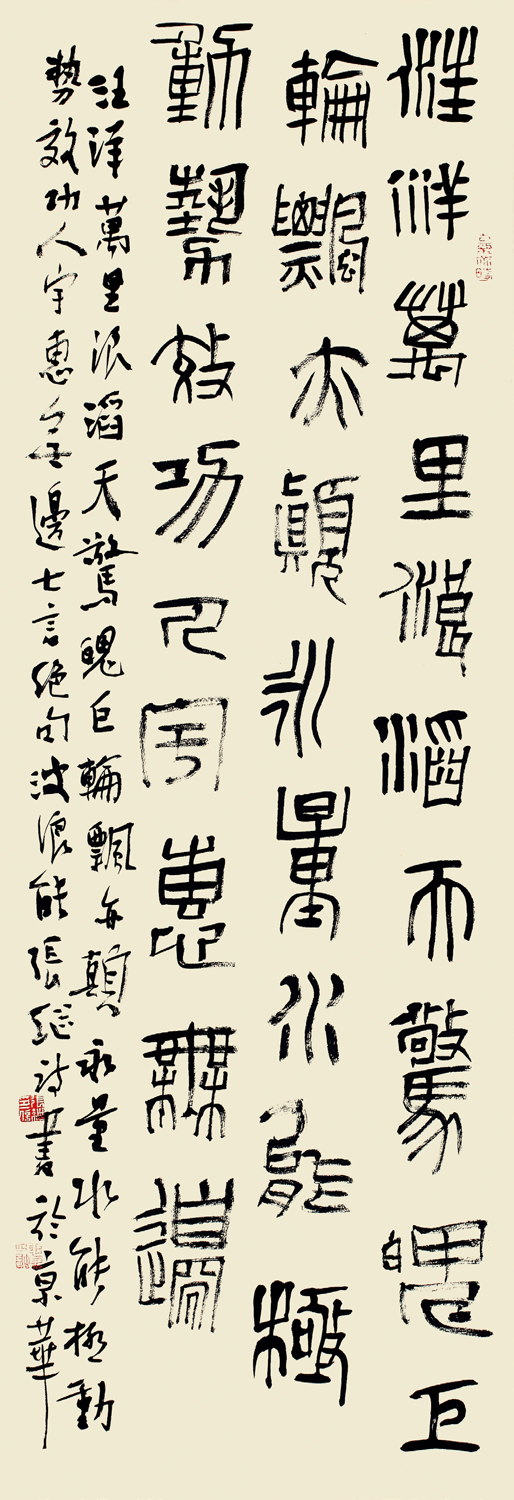 汪洋萬里浪滔天驚魄巨
輪飄亦顛永量水能極
動勢效功人宇惠無邊
汪洋萬里浪滔天驚魄巨輪飄亦顛永量水能極動
勢效功人宇惠無邊七言絕句波浪能張繼詩書於京華